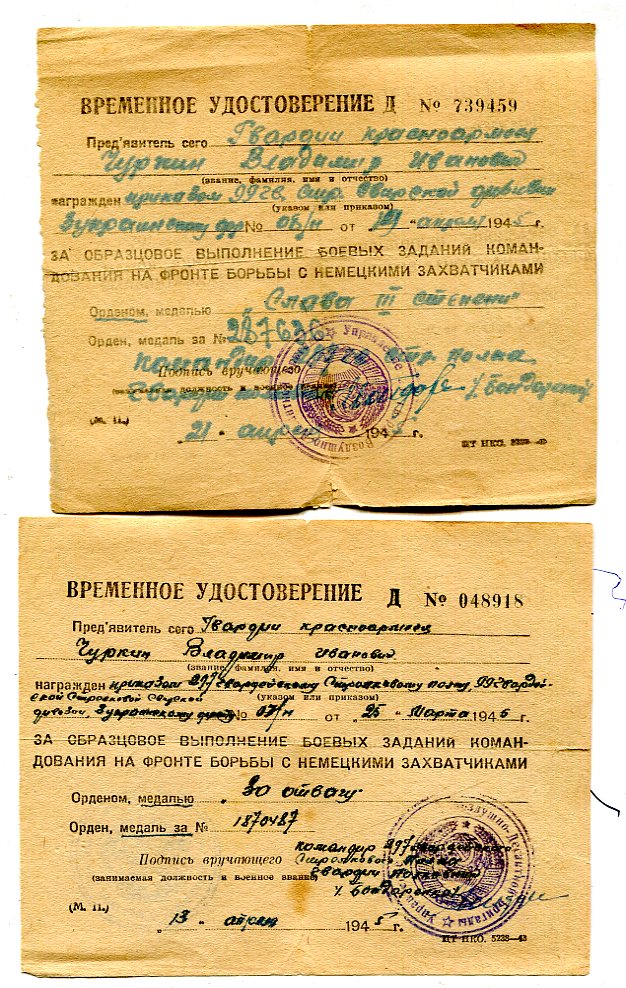 ВРЕМЕННОЕ УДОСТОВЕРЕНИЕ Д № 739459
Пред'явитель сего Гвардии красноармеец
Чуркин Владимир Иванович
(звание, фамилия, имя и отчество)
награжден приказом 99 гв. Стр. Свирской дивизии
(указом или приказом)
3 Украинскому фр № 06/н от "19" апреля 1945 г.
ЗА ОБРАЗЦОВОЕ ВЫПОЛНЕНИЕ БОЕВЫХ ЗАДАНИЙ КОМАН-
ДОВАНИЯ НА ФРОНТЕ БОРЬБЫ С НЕМЕЦКИМИ ЗАХВАТЧИКАМИ
Орденом, медалью "Слава III степени"
Орден, медаль за № 287636
Командир стр. полка
Подпись вручающего
Гвардии /Бондаренко/
(М. П.)
"21" апреля 1945 г.
ЦТ НКО. 5238—43
ВРЕМЕННОЕ УДОСТОВЕРЕНИЕ Д № 048918
Пред'явитель сего Гвардии красноармеец
Чуркин Владимир Иванович
(звание, фамилия, имя и отчество)
награжден приказом 297 гвардейскому Стрелковому полку, 99 гвардей-
(указом или приказом)
ской Стрелковой Свирской
дивизии, 3 украинскому фронту № 07/н от "25" Марта 1945 г.
ЗА ОБРАЗЦОВОЕ ВЫПОЛНЕНИЕ БОЕВЫХ ЗАДАНИЙ КОМАН-
ДОВАНИЯ НА ФРОНТЕ БОРЬБЫ С НЕМЕЦКИМИ ЗАХВАТЧИКАМИ
Орденом, медалью "За отвагу"
Орден, медаль за № 1870487
Командир 297 гвардейского
Подпись вручающего Стрелкового Полка
(занимаемая должность и военное звание) Гвардии полковник
/Бондаренко/
(М. П.)
"13" апреля 1945 г.
ЦТ НКО. 5238—43